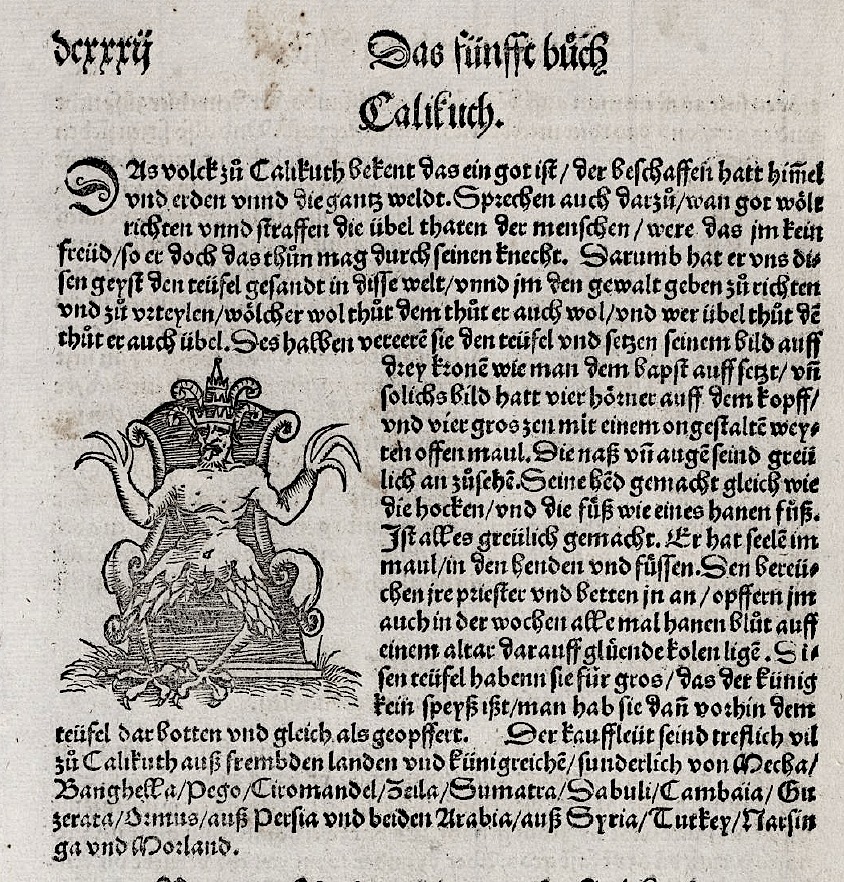 dcxxxij
Das fünfft bůch
Calikuth.
DAs volck zů Calikuth bekent das ein got ist / der beschaffen hatt him̃el
vnd erden vnnd die gantz weldt. Sprechen auch darzů / wan got wölt
richten vnnd straffen die übel thaten der menschen / were das jm kein
freüd / so er doch das thůn mag durch seinen knecht. Darumb hat er vns di⸗
sen geyst den teüfel gesandt in disse welt / vnnd jm den gewalt geben zů richten
vnd zů vrteylen / wölcher wol thůt dem thůt er auch wol / vnd wer übel thůt dẽ
thůt er auch übel. Des halben vereerẽ sie den teüfel vnd setzen seinem bild auff
drey kronẽ wie man dem bapst auff setzt / vñ
solichs bild hatt vier hörner auff dem kopff /
vnd vier gros zen mit einem ongestaltẽ wey⸗
ten offen maul. Die naß vñ augẽ seind greü
lich an zůsehẽ. Seine hẽd gemacht gleich wie
die hocken / vnd die füß wie eines hanen füß.
Jst alles greülich gemacht. Er hat seelẽ im
maul / in den henden vnd füssen. Den bereü⸗
chen jre priester vnd betten jn an / opffern jm
auch in der wochen alle mal hanen blůt auff
einem altar darauff glüende kolen ligẽ. Di⸗
sen teüfel habenn sie für gros / das der künig
kein speyß ißt / man hab sie dañ vorhin dem
teüfel dar botten vnd gleich als geopffert. Der kauffleüt seind treflich vil
zů Calikuth auß frembden landen vnd künigreichẽ / sunderlich von Mecha /
Banghella / Pego / Ciromandel / Zeila / Sumatra / Dabuli / Cambaia / Gu
zerata / Ormus / auß Persia vnd beiden Arabia / auß Syria / Turkey / Narsin
ga vnd Morland.